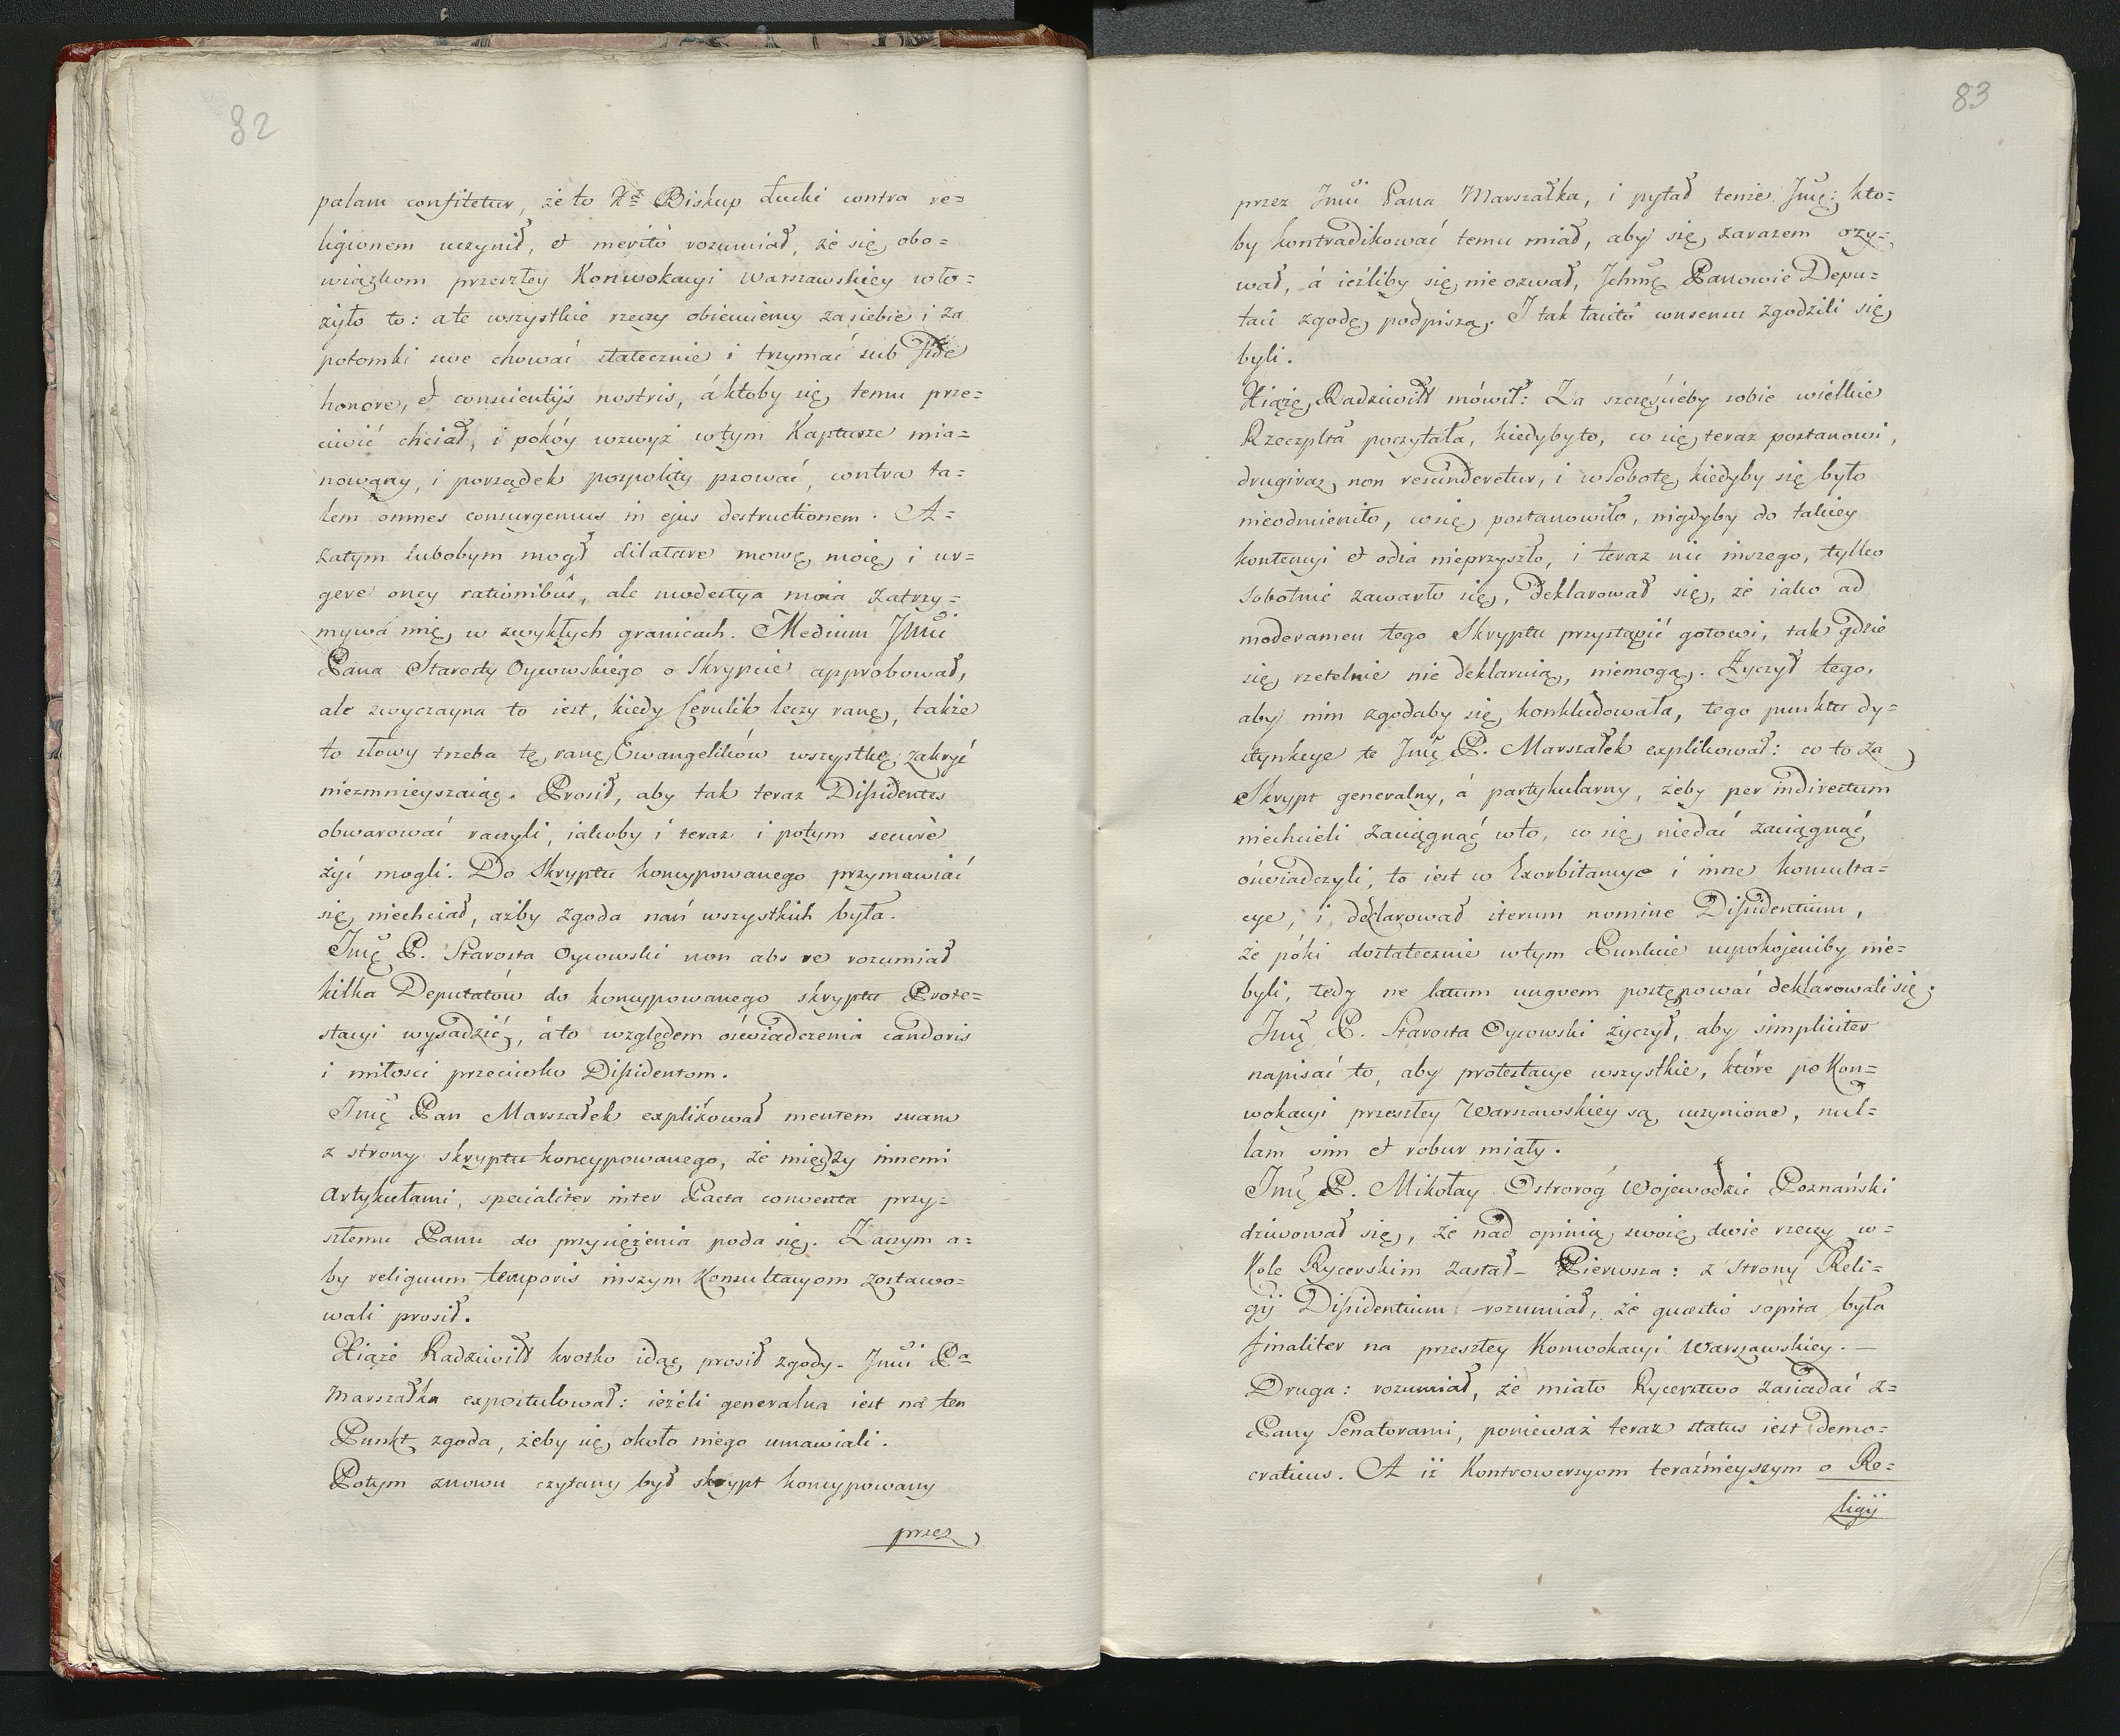 82
palam confitetur, że to Xz Biskup Łucki contra re=
ligionem uczynił, et meritò rozumiał, że się obo=
wiązkom przeszłey Konwokacyi Warszawskiey wło=
żyło to: ale wszystkie rzeczy obiecuiemy za siebie i za
potomki swe chować statecznie i trzymać sub fide
honore, et conscientijs nostris, á ktoby się temu prze=
ciwić chciał, i pokóy wzwyż w tym Kapturze mia=
nowany, i porządek pospolity psować, contra ta=
lem omnes consurgemus in ejus destructionem. A=
zatym lubobym mogł dilatare mowę moię i ur=
gere oney rationibus, ale modestya moia zatrzy=
mywa mię w zwykłych granicach. Medium Jmci
Pana Starosty Oycowskiego o Skrypcie approbował,
ale zwyczayna to iest, kiedy Cerulik leczy ranę, także
to słowy trzeba tę ranę Ewangelików wszystkę zakryć
niezmnieyszaiąc. Prosił, aby tak teraz Dissidentes
obwarować raczyli, iakoby i teraz i potym securè
żyć mogli. Do Skryptu koncypowanego przymawiać
się niechciał, ażby zgoda nań wszystkich była.
Jmę P. Starosta Oycowski non abs re rozumiał
kilka Deputatów do koncypowanego skryptu Prote=
stacyi wysadzić, á to względem oświadczenia candoris
i miłości przeciwko Dissidentom.
Jmę Pan Marszałek explikował mentem suam
z strony skryptu koncypowanego, że między innemi
Artykułami, specialiter inter Pacta conventa przy=
szłemu Panu do przysiężenia poda się. Zaczym a=
by reliquum temporis inszym Konsultacyom zostawo=
wali prosił.
Xiąże Radziwiłł krotko idąc, prosił zgody. Jmci Pa
Marszałka expostulował: ieżeli generalna iest na ten
Punkt zgoda, żeby się około niego umawiali.
Potym znowu czytany był skrypt koncypowany
przez
83
przez Jmci Pana Marszałka, i pytał tenże Jmę: kto=
by kontradikować temu miał, aby się zarazem ozy=
wał, á ieźliby się nie ozwał, Ichmę Panowie Depu=
taci zgodę podpiszą. I tak tacitô consensu zgodzili się
byli.
Xiążę Radziwiłł mówił: Za szczęścieby sobie wielkie
Rzeczplta poczytała, kiedyby to, co się teraz postanowi,
drugiraz non rescinderetur, i w Sobotę kiedyby się było
nieodmieniło, co się postanowiło, nigdyby do takiey
kontencyi et odia nieprzyszło, i teraz nic inszego, tylko
Sobotnie zawarło się, deklarował się, że iako ad
moderamen tego Skryptu przystąpić gotowi, tak gdzie
się rzetelnie nie deklaruią, niemogą. Życzył tego,
aby nim zgodaby się konkludowała, tego punktu dy=
stynkcye te Jmę P. Marszałek explikował: co to za
Skrypt generalny, á partykularny, żeby per indirectum
niechcieli zaciągnąć w to, co się niedać zaciągnąć
oświadczyli, to iest w Exorbitancye i inne konsulta=
cye, i deklarował iterum nomine Dissidentium,
że póki dostatecznie w tym Punkcie uspokojeniby nie=
byli, tedy ne latum unguem postępować deklarowali się.
Jmę P. Starosta Oycowski życzył, aby simpliciter
napisać to, aby protestacye wszystkie, które po Kon=
wokacyi przeszłey Warszawskiey są uczynione, nul=
lam vim et robur miały.
Jmę P. Mikołay Ostroróg Wojewodzic Poznański
dziwował się, że nad opinią swoię dwie rzeczy w=
Kole Rycerskim zastał – Pierwsza: z strony Reli=
gij Dissidentium rozumiał, że quæstio sopita była
finaliter na przeszłey Konwokacyi Warszawskiey. –
Druga: rozumiał, że miało Rycerstwo zasiadać z=
Pany Senatorami, ponieważ teraz status iest demo=
craticus. A iż Kontrowersyom teraźnieyszym o Re=
ligij